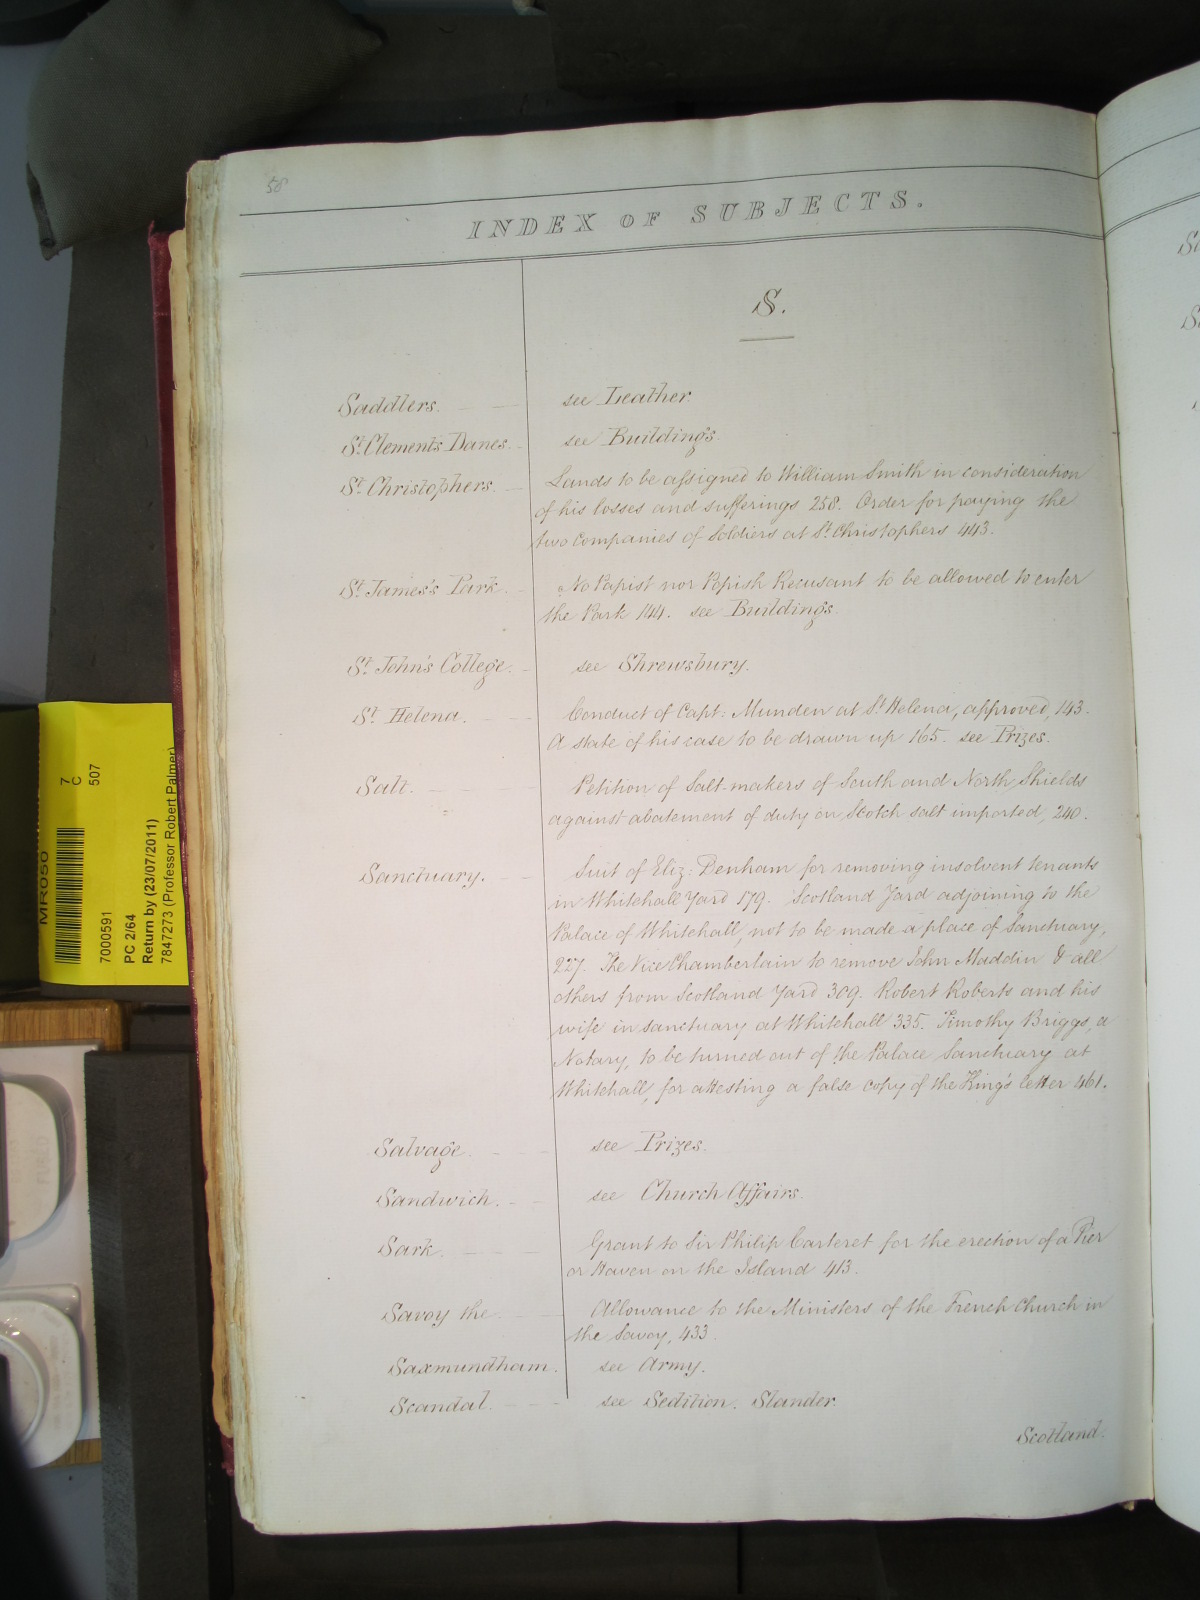 58
INDEX OF SUBJECTS.
S.
Saddlers. see Leather.
St Clements Danes. see Buildings.
St Christophers. Lands to be assigned to William Smith in consideration
of his losses and sufferings 258. Order for paying the
two Companies of Soldiers at St Christophers 443.
St James's Park. No Papist nor Popish Recusant to be allowed to enter
the Park 144. see Buildings.
St John's College. see Shrewsbury.
St Helena. Conduct of Capt: Munden at St Helena, approved, 143.
A state of his case to be drawn up 165. see Prizes.
Salt. Petition of Salt-makers of South and North Shields
against abatement of duty on Scotch salt imported, 240.
Sanctuary. Suit of Eliz: Denham for removing insolvent tenants
in Whitehall Yard 179. Scotland Yard adjoining to the
Palace of Whitehall, not to be made a place of Sanctuary,
227. The Vice Chamberlain to remove John Maddin & all
others from Scotland Yard 309. Robert Roberts and his
wife in sanctuary at Whitehall 335. Timothy Briggs, a
Notary, to be turned out of the Palace Sanctuary at
Whitehall, for attesting a false copy of the King's letter 461.
Salvage. see Prizes.
Sandwich. see Church Affairs.
Sark. Grant to Sir Philip Carteret for the erection of a Pier
or Haven on the Island 413.
Savoy the Allowance to the Ministers of the French Church in
the Savoy, 433.
Saxmundham. see Army.
Scandal. see Sedition. Slander.
Scotland.
MR050
7
C
507
7000591
PC 2/64
Return by (23/07/2011)
7847273 (Professor Robert Palmer)